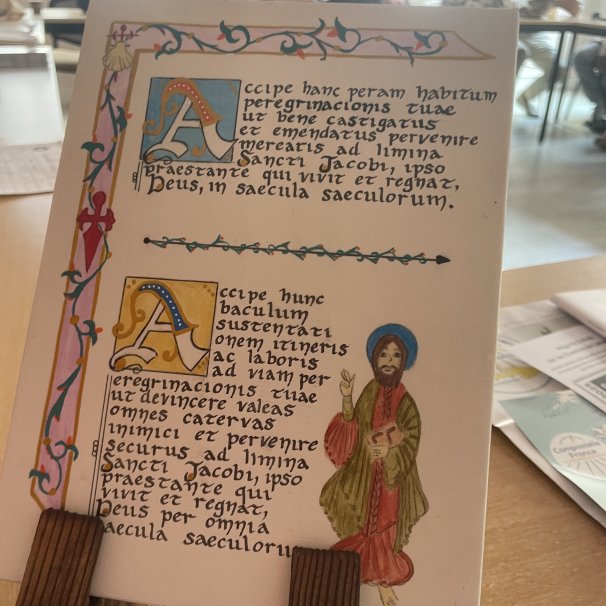 Accipe hanc peram habitum
peregrinacionis tuae
ut bene castigatus
et emendatus pervenire
mereatis ad limina
Sancti Jacobi, ipso
praestante qui vivit et regnat,
Deus, in saecula saeculorum.
Accipe hunc
baculum
sustentati
onem itineris
ac laboris
ad viam per
eregrinacionis tuae
ut devincere valeas
omnes catervas
inimici et pervenire
securus ad limina
Sancti Jacobi, ipso
praestante qui
vivit et regnat,
Deus per omnia
saecula saeculoru
Compostelle
France